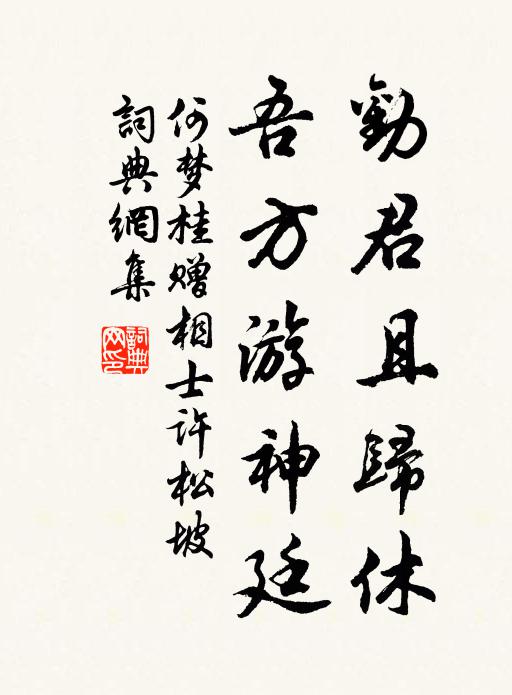 勸君且歸休
吾方游神廷
何梦桂赠相士许松坡
詞典網集
詞典網印